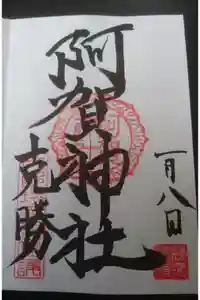 阿賀神社
一月八日
克勝